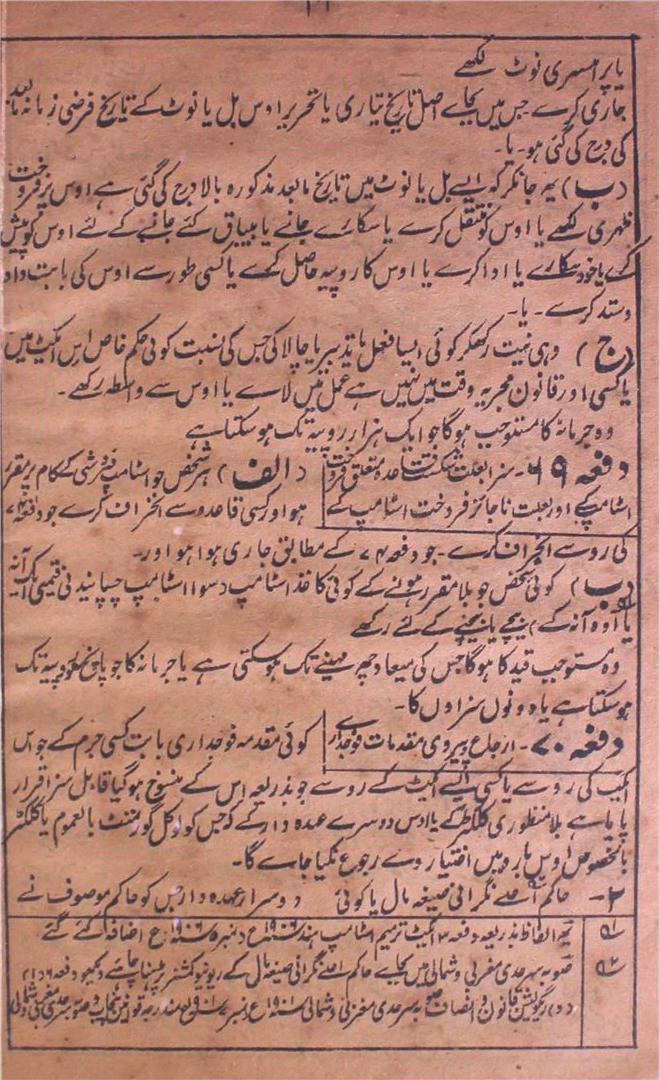 یا پرامسری نوٹ لکھے
جاری کرے جس میں بجاے اصل تاریخ تیاری یا تحریر اوس بل یا نوٹ کے تاریخ فرضی زمانہ مابعد
کی درج کی گئی ہو۔ یا۔
(ب) یہ جانکر کہ ایسے بل یا نوٹ میں تاریخ مابعد مذکورہ بالا درج کی گئی ہے اوس پر فروخت
ظہری لکھے یا اوس کو منتقل کرے یا سکارے جانے یا بیباق کئے جانے کے لئے اوس کو پیش
کرے یا خود سکارے یا ادا کرے یا اوس کا روپیہ حاصل کرے یا کسی طور سے اوس کی بابت داد
وستد کرے۔ یا۔
(ج) وہی نیت رکھکر کوئی ایسا فعل یا تدبیر یا چالاکی جس کی نسبت کوئی حکم خاص اس ایکٹ میں
یا کسی اور قانون مجریہ وقت میں نہیں ہے عمل میں لاے یا اوس سے واسطہ رکھے۔
وہ جرمانہ کا مستوجب ہوگا جو ایک ہزار روپیہ تک ہو سکتا ہے
دفعہ ۶۹۔ سزا بعلت شکست قاعدہ متعلق فروخت (الف) ہر شخص جو اسٹامپ فروشی کے کام پر مقرر
اسٹامپ کے اور بعلت ناجائز فروخت اسٹامپ کے ہو اور کسی قاعدہ سے انحراف کرے جو دفعہ ۷۴
کی رو سے انحراف کرے۔ جو دفعہ ۷۴ کے مطابق جاری ہوا ہو اور۔
(ب) کوئی شخص جو بلا مقرر ہونے کے کوئی کاغذ اسٹامپ دسوا اسٹامپ چسپانیدنی قیمتی ایک آنہ
یا آدہ آنہ کے) بیچے یا بیچنے کے لئے رکھے
وہ مستوجب قید کا ہوگا جس کی میعاد چھ مہینے تک ہو سکتی ہے یا جرمانہ کا جو پانچ سو روپیہ تک
ہو سکتا ہے یا دونوں سزاوں کا۔
دفعہ ۷۰۔ ارجاع پیروی مقدمات فوجداری کوئی مقدمہ فوجداری بابت کسی جرم کے جو اس
ایکٹ کی رو سے یا کسی ایسے ایکٹ کے رو سے جو بذریعہ اس کے منسوخ ہوگیا قابل سزا قرار
پایا ہے بلا منظوری کلکٹر کے یا اوس دوسرے عہدہ دار کے کہ جس کو لوکل گورنمنٹ بالعموم یا کلکٹر
بالخصوص اوس بارہ میں اختیار دے رجوع نکیا جاے گا۔
۲۔ حاکم اعلے نگرانی صیغہ مال یا کوئی دوسرا عہدہ دار جس کو حاکم موصوف نے
یہ الفاظ بذریعہ دفعہ ۳ ایکٹ ترمیم اسٹامپ ہند ۱۹۰۶ع (نمبر ۵ ۱۹۰۶ع) اضافہ کئے گئے
صوبہ سرحدی مغربی و شمالی میں بجاے حاکم اعلے نگرانی صیغہ مال کے ریونیو کمشنر پڑہنا چاہئے دیکھو دفعہ ۶ (۱)
(د) ریگولیشن قانون و انصاف صوبہ سرحدی مغربی و شمالی ۱۹۰۱ع (نمبر ۷ ۱۹۰۱ع) مندرجہ قوانین پنجاب و صوبہ سرحدی مغربی و شمالی